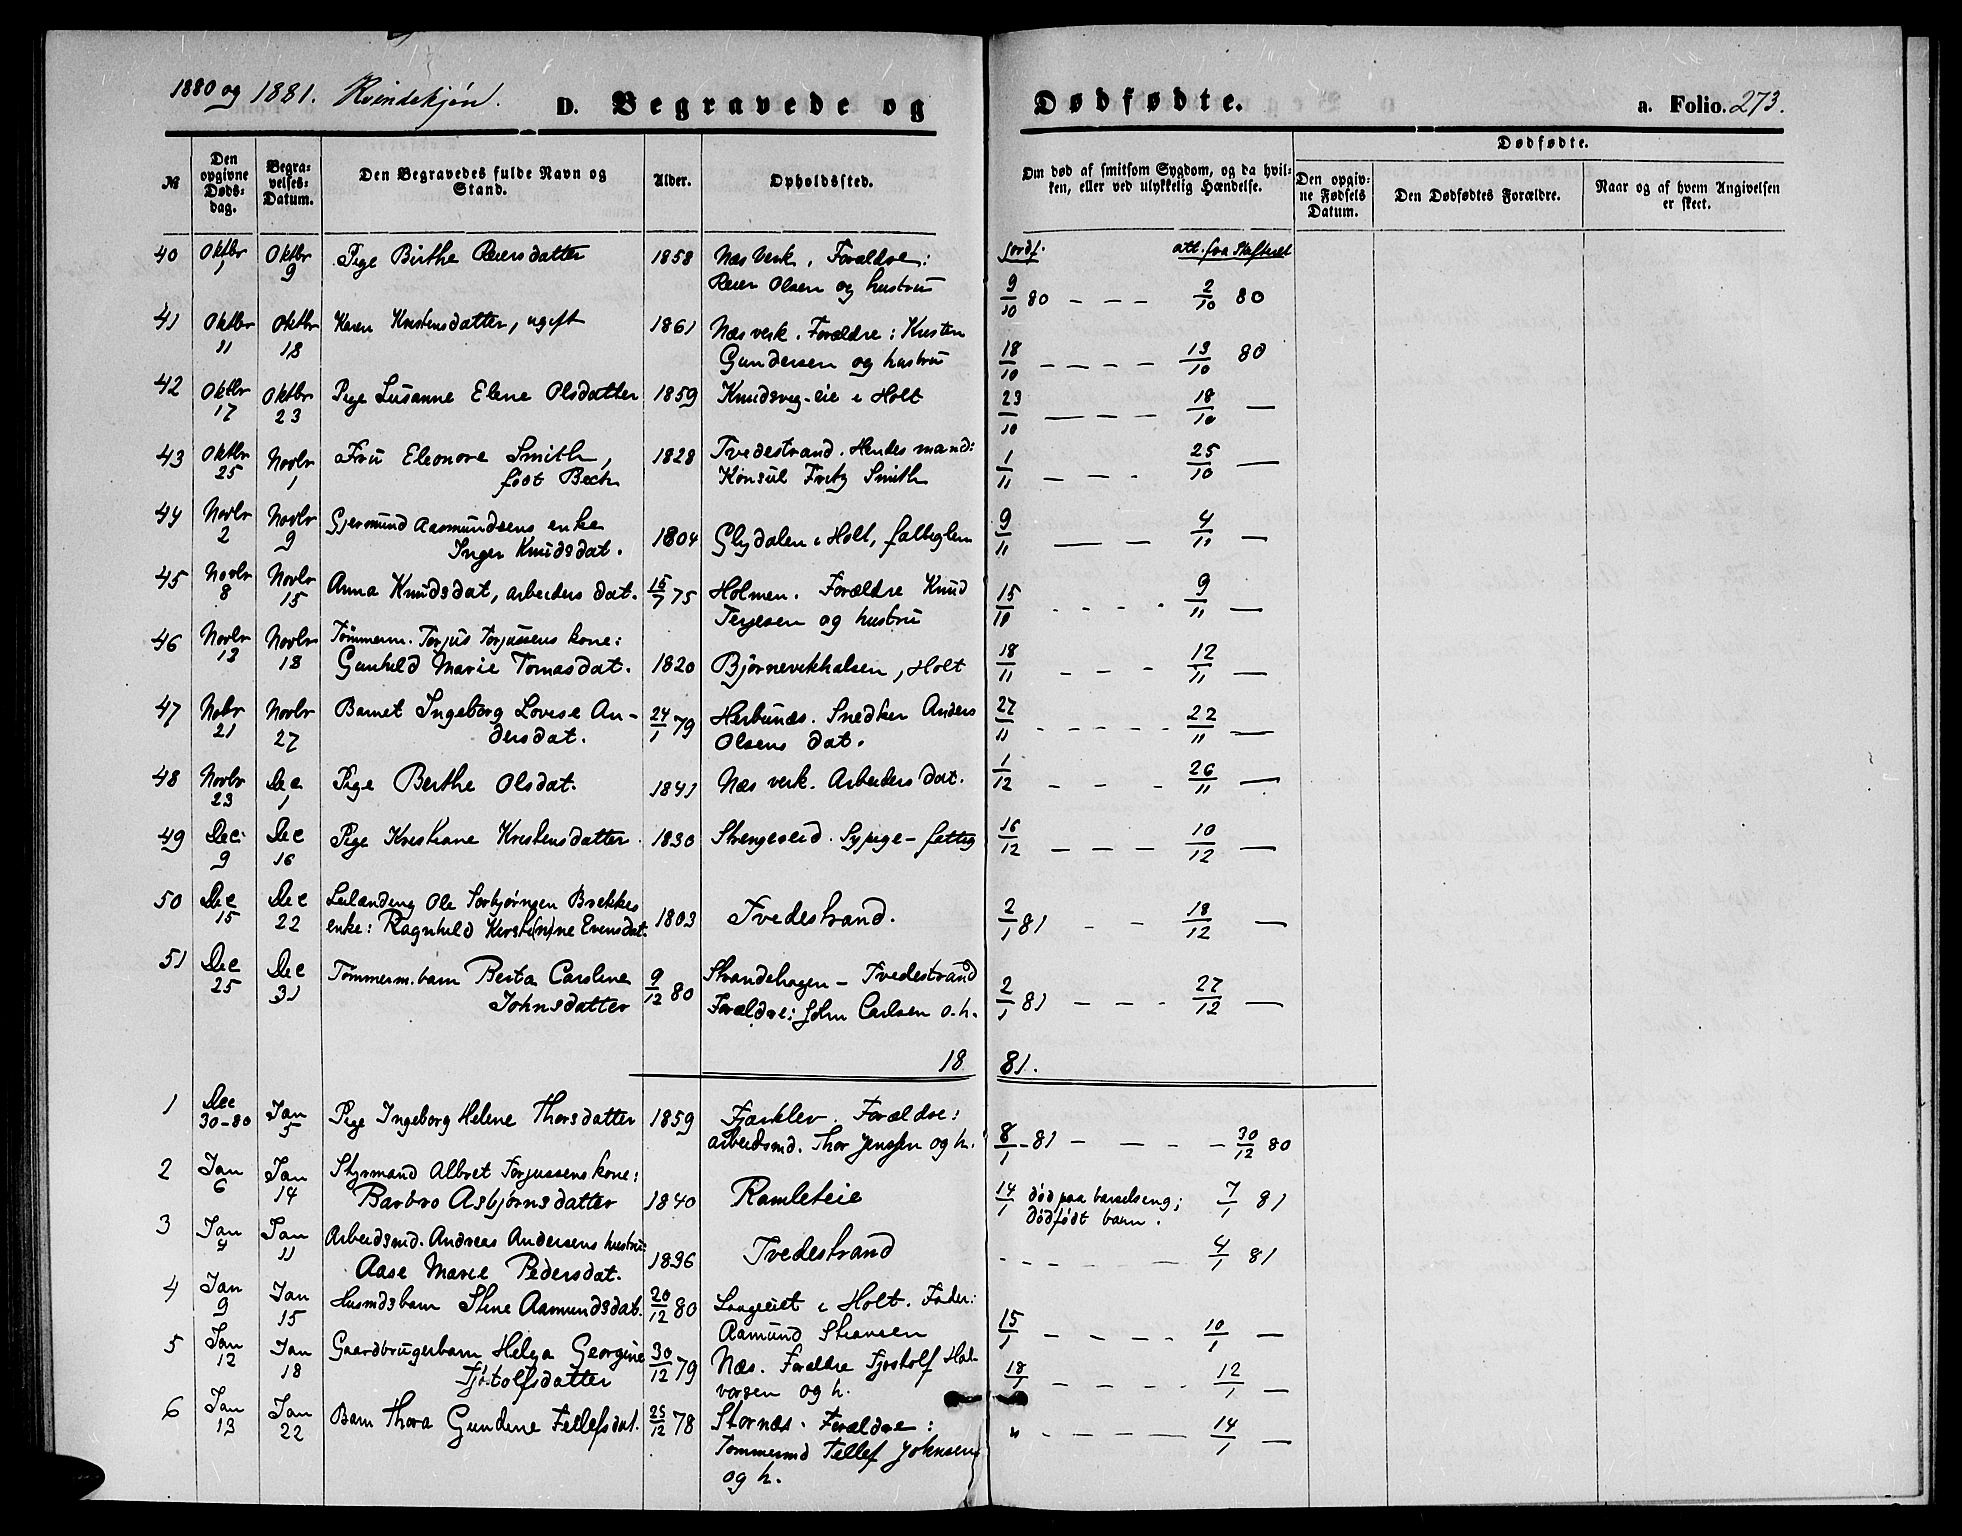 1880 og 1881. Kvindekjøn. D. Begravede og Dødfødte. a. Folio. 273.
№ Den opgivne Døds-dag. Begra-velses-Datum. Den Begravedes fulde Navn og Stand. Alder. Opholdssted. Om død af smitsom Sygdom, og da hvil-ken, eller ved ulykkelig Hændelse. Dødfødte.
Den opgiv-ne Fødsels Datum. Den Dødfødtes Forældre. Naar og af hvem Angivelsen er skeet.
40 Oktbr 1 Oktbr 9 Pige Birthe Reiersdatter 1858 Næs Verk. Forældre: jordf. att. fra Skifteret
Reier Olsen og hustru 9/10 80 - - - 2/10 80
41 Oktbr 11 Oktbr 18 Karen Kristensdatter, ugift 1861 Næs verk. Forældre: Kristen
Gundersen og hustru 18/10 - - - - 13/10 80
42 Oktbr 17 Oktbr 23 Pige Susanne Elene Olsdatter 1859 Knudsveg-eie i Holt 23/10 - - - 18/10 —
43 Oktbr 25 Novbr 1 Fru Eleonore Smith, 1828 Tvedestrand. Hendes mand:
født Bech Konsul Fritz Smith 1/11 - - - 25/10 —
44 Novbr 2 Novbr 9 Gjermund Aasmundsens enke
Inger Knudsdat. 1804 Glydalen i Holt, fattiglem 9/11 — - 4/11 —
45 Novbr 8 Novbr 15 Anna Knudsdat, arbeiders dat. 15/7 75 Holmen. Forældre Knud
Terjesen og hustru 15/10 - - - - 9/11 —
46 Novbr 13 Novbr 18 Tømmerm. Torjus Torjussens kone:
Gunhild Marie Tomasdat. 1820 Bjørnevikhalsen, Holt 18/11 - - - 12/11 —
47 Nobr 21 Novbr 27 Barnet Ingeborg Lovise An- 24/1 79 Snedker Anders
dersdat. Olsens dat. 27/11 - - - - - 22/11 —
48 Novbr 23 Dec 1 Pige Berthe Olsdat. 1841 Næs verk. Arbeiders dat. 1/12 - - - 26/11 —
49 Dec 9 Dec 16 Pige Kristiane Kristensdatter. 1830 Strengereid. Sypige - fattig 16/12 - - - 10/12 —
50 Dec 15 Dec 22 Leilænding Ole Torbjørnsen Brekkes
enke: Ragnhild Kirsti(n)ne Evensdat. 1803 Tvedestrand. 2/1 81 - - 18/12 —
51 Dec 25 Dec 31 Tømmerm. barn Berta Caroline 9/12 80 Strandehagen - Tvedestrand
Johnsdatter Forældre: John Carlsen o. h. 2/1 81 - - - 27/12 —
18 81.
1 Dec 30-80 Jan 5 Pige Ingeborg Helene Thorsdatter 1859 Fjærklev. Forældre:
arbeidsmd. Thor Jensen og h. 8/1-81 - - - - 30/12 80
2 Jan 6 Jan 14 Styrmand Albret Torjussens kone:
Barbro Asbjørnsdatter 1840 Ramleteie 14/1 død paa barselseng; 7/1 81
dødfødt barn.
3 Jan 4 Jan 11 Arbeidsmd. Andreas Andersens hustru:
Aase Marie Pedersdat. 1836 Tvedestrand - - - - - 4/1 81
4 Jan 9 Jan 15 Husmdsbarn Stine Aamundsdat. 20/12 80 i Holt. Fader:
Aamund 15/1 - - - - 10/1 —
5 Jan 12 Jan 18 Gaardbrugerbarn Helga Georgine 30/12 79 Næs. Forældre Tjostolf Hal-
Tjøstolfsdatter vorsen og h. 18/1 - - - - 12/1 —
6 Jan 13 Jan 22 Barn Thora Gundine Tellefsdat. 25/12 78 Stornæs. Forældre: " - - - - 14/1 —
Tømmermd Tellef Johnsen
og h.